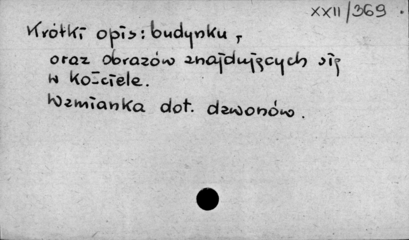 XXII/369.
Krótki opis: budynku,
oraz obrazów znajdujących się
w kościele.
Wzmianka dot. dzwonów.